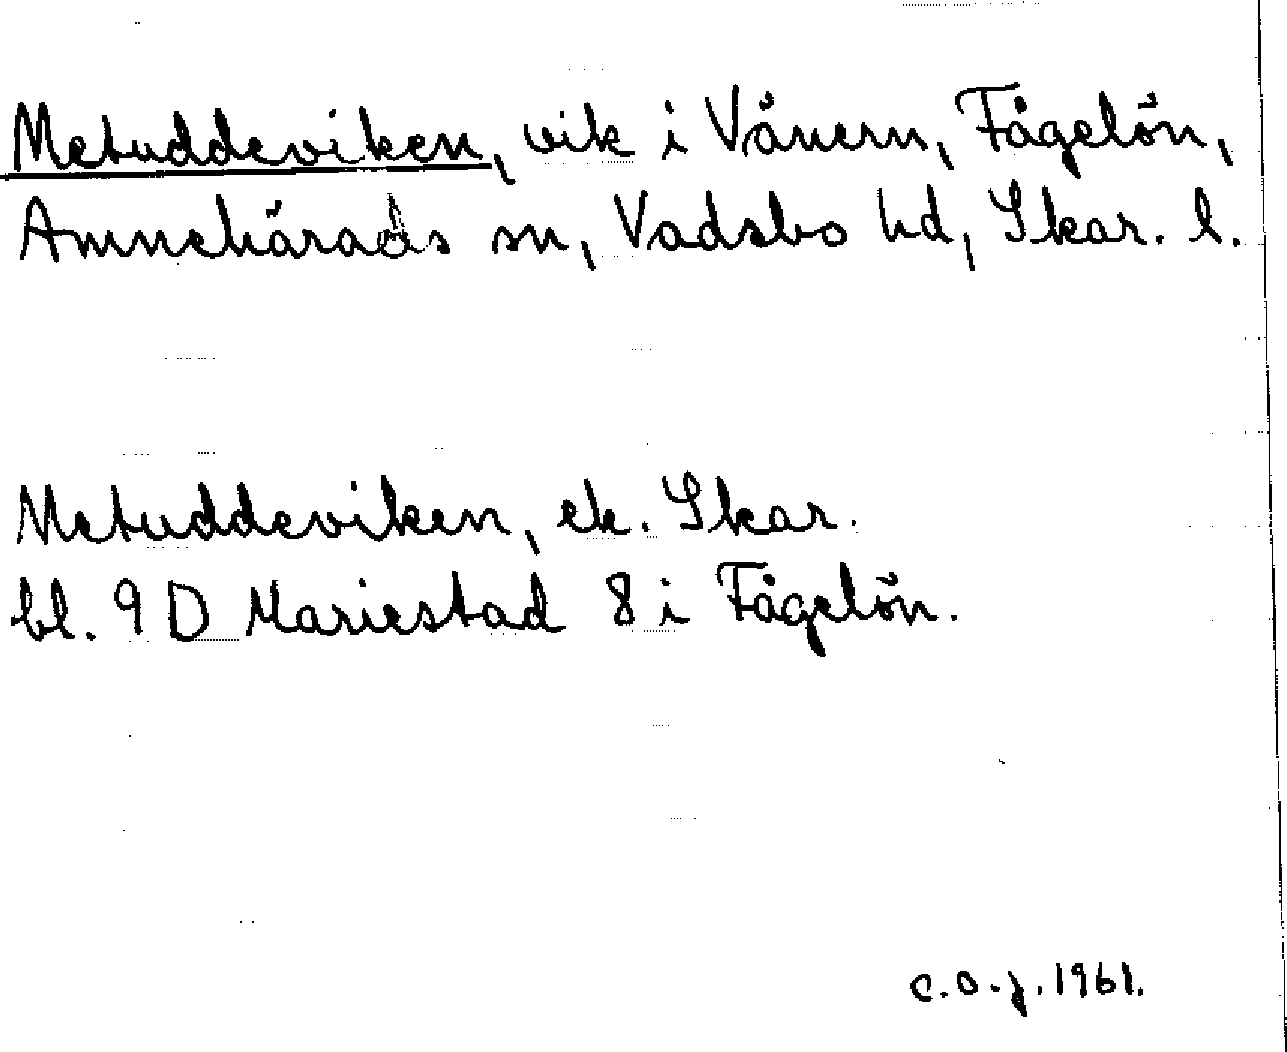 Metuddeviken, vik i Vänern, Fågelön,
Amnehärads sn, Vadsbo hd, Skar. l.
Metuddeviken, ek. Skar.
bl. 9 D Mariestad 8 i Fågelön.
C.O.J. 1961.